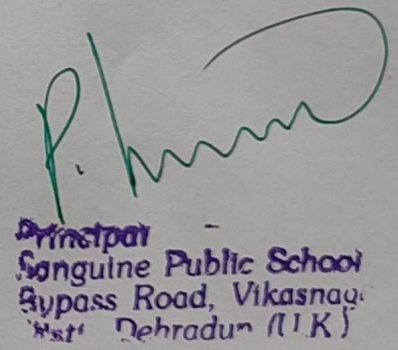 P.
Principal
Sanguine Public School
Bypass Road, Vikasnag
Dist Dehradun (U.K)